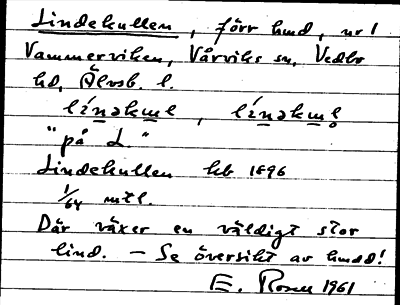 Lindekullen, förr hmd, nr 1
Vammerviken, Vårviks sn, Vedbo
hd, Älvsb. l.
"på L."
Lindekullen kb 1896
1/64 mtl.
Där växer en väldigt stor
lind. – Se översikt av hmdd!
E. 1961